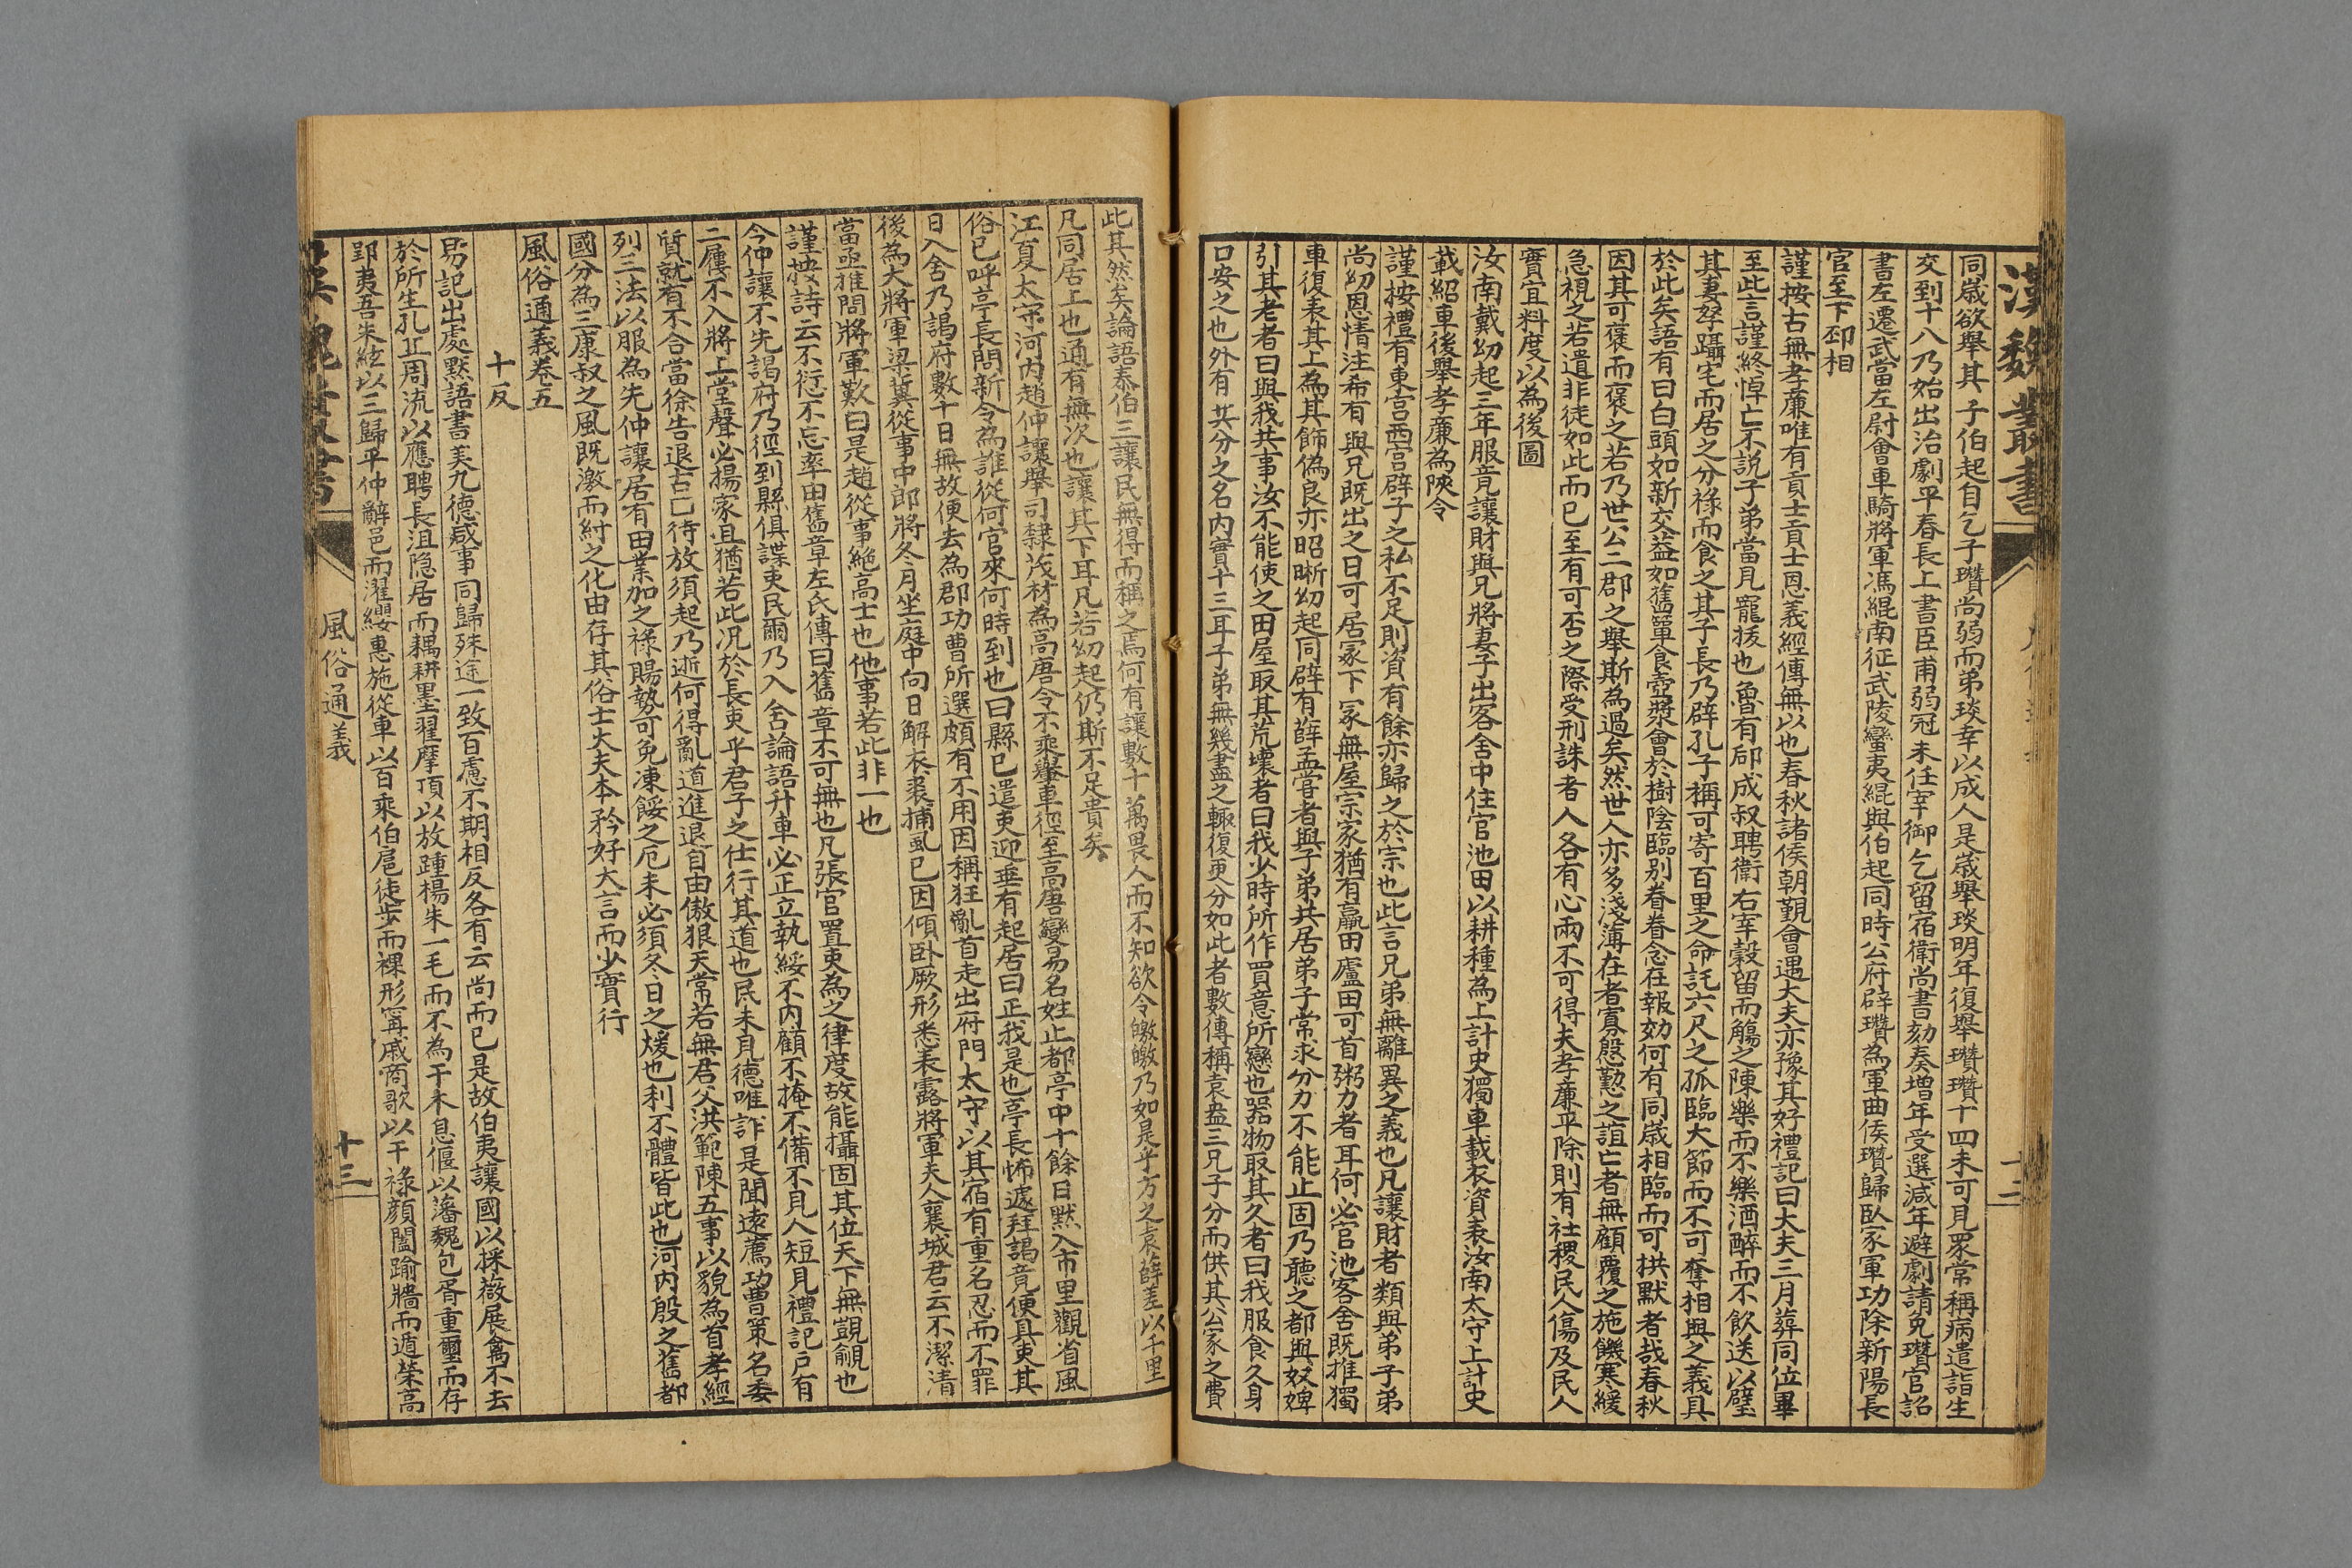 漢魏叢書
同歲欲舉其子伯起自乞子瓚尚弱而弟琰幸以成人是歲舉琰明年復舉瓚瓚十四未可見眾常稱病遣詣生
交到十八乃始出治劇平春長上書臣甫弱冠未任宰御乞留宿衛尚書劾奏增年受選減年避劇請免瓚官詔
書左遷武當左尉會車騎將軍馮緄南征武陵蠻夷緄與伯起同時公府辟瓚為軍曲侯瓚歸臥家軍功除新陽長
官至下邳相
謹按古無孝廉唯有貢士貢士恩義經傳無以也春秋諸侯朝覲會遇大夫亦豫其好禮記曰大夫三月葬同位畢
至此言謹終悼亡不說子弟當見寵拔也魯有郈成叔聘衛右宰穀留而觴之陳樂而不樂酒醉而不飲送以璧
其妻孥躡宅而居之分祿而食之其子長乃辟孔子稱可寄百里之命託六尺之孤臨大節而不可奪相與之義具
於此矣語有曰白頭如新交益如舊簞食壺漿會於樹陰臨別眷眷念在報効何有同歲相臨而可拱默者哉春秋
因其可褒而褒之若乃世公二郡之舉斯為過矣然世人亦多淺薄在者寡慇懃之誼亡者無顧覆之施饑寒緩
急視之若遺非徒如此而已至有可否之際受刑誅者人各有心兩不可得夫孝廉平除則有社稷民人傷及民人
實宜料度以為後圖
汝南戴幼起三年服竟讓財與兄將妻子出客舍中住官池田以耕種為上計史獨車載衣資表汝南太守上計史
載紹車後舉孝廉為陝令
謹按禮有東宮西宮辟子之私不足則資有餘亦歸之於宗也此言兄弟無離異之義也凡讓財者類與弟子弟
尚幼恩情注希有與兄既出之日可居冢下冢無屋宗家猶有羸田廬田可首粥力者耳何必官池客舍既推獨
車復表其上為其飾偽良亦昭晰幼起同辟有薛孟嘗者與子弟共居弟子常求分力不能止固乃聽之都與奴婢
引其老者曰與我共事汝不能使之田屋取其荒壞者曰我少時所作買意所戀也器物取其久者曰我服食久身
口安之也外有共分之名內實十三耳子弟無幾盡之輒復更分如此者數傳稱袁盎三兄子分而供其公家之費
此其然矣論語泰伯三讓民無得而稱之焉何有讓數十萬畏人而不知欲令皦皦乃如是乎方之袁薛差以千里
凡同居上也通有無次也讓其下耳凡若幼起仍斯不足貴矣
江夏太守河內趙仲讓舉司隸茂材為高唐令不乘轝車徑至高唐變易名姓止都亭中十餘日默入市里觀省風
俗已呼亭長問新令為誰從何官來何時到也曰縣已遣吏迎垂有起居曰正我是也亭長怖遽拜謁竟便具吏其
日入舍乃謁府數十日無故便去為郡功曹所選頗有不用因稱狂亂首走出府門太守以其宿有重名忍而不罪
後為大將軍梁冀從事中郎將冬月坐庭中向日解衣裘捕虱已因傾臥厥形悉表露將軍夫人襄城君云不潔清
當亟推問將軍歎曰是趙從事絕高士也他事若此非一也
謹按詩云不愆不忘率由舊章左氏傳曰舊章不可無也凡張官置吏為之律度故能攝固其位天下無覬覦也
今仲讓不先謁府乃徑到縣俱諜吏民爾乃入舍論語升車必正立執綏不內顧不掩不備不見人短見禮記戶有
二屨不入將上堂聲必揚家且猶若此况於長吏乎君子之仕行其道也民未見德唯詐是聞遠薦功曹策名委
質就有不合當徐告退古已待放須起乃逝何得亂道進退自由傲狠天常若無君父洪範陳五事以貌為首孝經
列三法以服為先仲讓居有田業加之祿賜勢可免凍餒之厄未必須冬日之煖也利不體皆此也河內殷之舊都
國分為三康叔之風既激而紂之化由存其俗士大夫本矜好大言而少實行
風俗通義卷五
十反
易記出處默語書美九德咸事同歸殊途一致百慮不期相反各有云尚而已是故伯夷讓國以採薇展禽不去
於所生孔丘周流以應聘長沮隱居而耦耕墨翟摩頂以放踵楊朱一毛而不為干木息偃以藩魏包胥重璽而存
郢夷吾朱絃以三歸平仲辭邑而濯纓惠施從車以百乘伯扈徒步而裸形甯戚商歌以干祿顏闔踰牆而遁榮高
風俗通義
十三